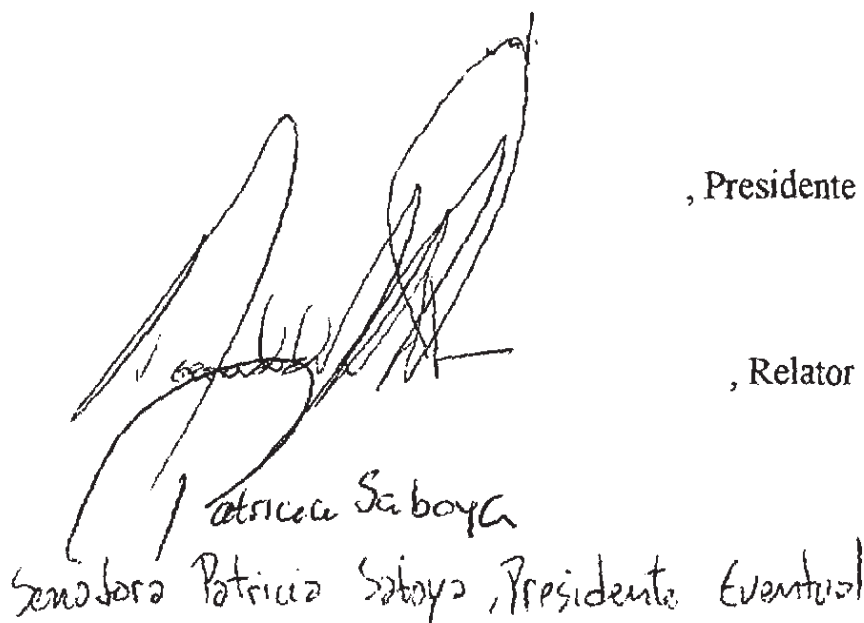 , Presidente
, Relator
Patricia Saboya
Senadora Patricia Saboya, Presidente Eventual